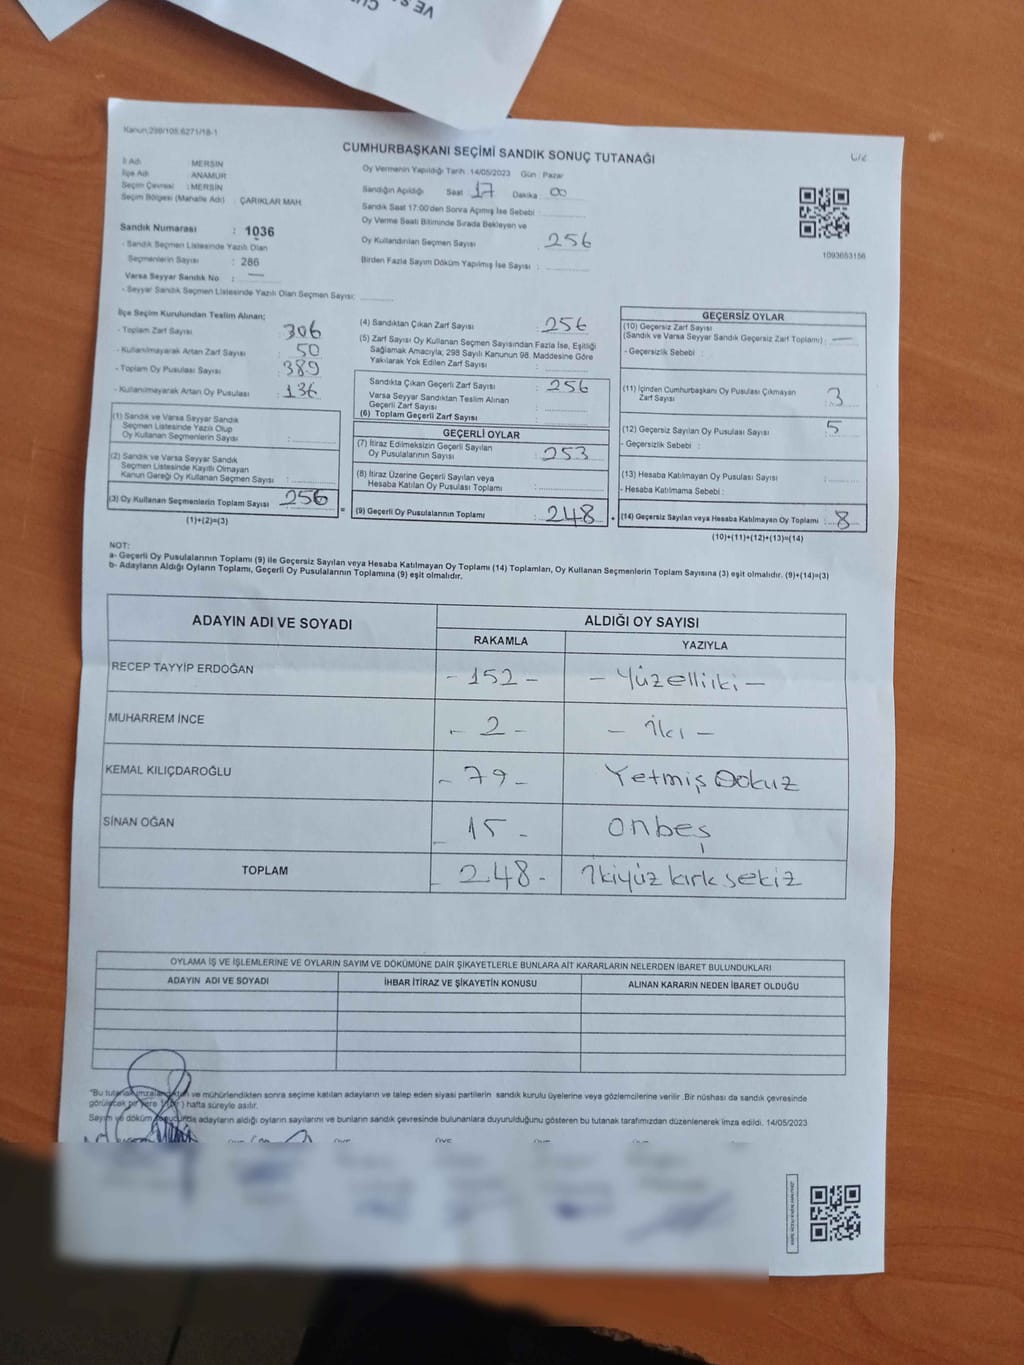 VE S
Kanun:298/105:6271/18-1
CUMHURBAŞKANI SEÇİMİ SANDIK SONUÇ TUTANAĞI
İl Adı : MERSİN
İlçe Adı : ANAMUR
Seçim Çevresi : MERSİN
Seçim Bölgesi (Mahalle Adı) : ÇARIKLAR MAH.
Oy Vermenin Yapıldığı Tarih :14/05/2023 Gün : Pazar
Sandığın Açıldığı Saat 17 Dakika 00
Sandık Saat 17:00'den Sonra Açımış İse Sebebi :
Oy Verme Saati Bitiminde Sırada Bekleyen ve
Oy Kullandırılan Seçmen Sayısı : 256
Birden Fazla Sayım Döküm Yapılmış İse Sayısı :
1093653156
Sandık Numarası : 1036
- Sandık Seçmen Listesinde Yazılı Olan
Seçmenlerin Sayısı : 286
Varsa Seyyar Sandık No : —
- Seyyar Sandık Seçmen Listesinde Yazılı Olan Seçmen Sayısı:
İlçe Seçim Kurulundan Teslim Alınan;
- Toplam Zarf Sayısı : 306
- Kullanılmayarak Artan Zarf Sayısı : 50
- Toplam Oy Pusulası Sayısı : 389
- Kullanılmayarak Artan Oy Pusulası : 136
(1) Sandık ve Varsa Seyyar Sandık
Seçmen Listesinde Yazılı Olup
Oy Kullanan Seçmenlerin Sayısı :
(2) Sandık ve Varsa Seyyar Sandık
Seçmen Listesinde Kayıtlı Olmayan
Kanun Gereği Oy Kullanan Seçmen Sayısı :
(3) Oy Kullanan Seçmenlerin Toplam Sayısı : 256
(1)+(2)=(3)
(4) Sandıktan Çıkan Zarf Sayısı : 256
(5) Zarf Sayısı Oy Kullanan Seçmen Sayısından Fazla İse, Eşitliği
Sağlamak Amacıyla; 298 Sayılı Kanunun 98. Maddesine Göre
Yakılarak Yok Edilen Zarf Sayısı :
Sandıkta Çıkan Geçerli Zarf Sayısı : 256
Varsa Seyyar Sandıktan Teslim Alınan
Geçerli Zarf Sayısı :
(6) Toplam Geçerli Zarf Sayısı :
GEÇERLİ OYLAR
(7) İtiraz Edilmeksizin Geçerli Sayılan
Oy Pusulalarının Sayısı : 253
(8) İtiraz Üzerine Geçerli Sayılan veya
Hesaba Katılan Oy Pusulası Toplamı :
= (9) Geçerli Oy Pusulalarının Toplamı : 248
GEÇERSİZ OYLAR
(10) Geçersiz Zarf Sayısı
(Sandık ve Varsa Seyyar Sandık Geçersiz Zarf Toplamı) : —
- Geçersizlik Sebebi :
(11) İçinden Cumhurbaşkanı Oy Pusulası Çıkmayan
Zarf Sayısı : 3
(12) Geçersiz Sayılan Oy Pusulası Sayısı : 5
- Geçersizlik Sebebi :
(13) Hesaba Katılmayan Oy Pusulası Sayısı :
- Hesaba Katılmama Sebebi :
+ (14) Geçersiz Sayılan veya Hesaba Katılmayan Oy Toplamı : 8
(10)+(11)+(12)+(13)=(14)
NOT:
a- Geçerli Oy Pusulalarının Toplamı (9) ile Geçersiz Sayılan veya Hesaba Katılmayan Oy Toplamı (14) Toplamları, Oy Kullanan Seçmenlerin Toplam Sayısına (3) eşit olmalıdır. (9)+(14)=(3)
b- Adayların Aldığı Oyların Toplamı, Geçerli Oy Pusulalarının Toplamına (9) eşit olmalıdır.
ADAYIN ADI VE SOYADI ALDIĞI OY SAYISI
RAKAMLA YAZIYLA
RECEP TAYYİP ERDOĞAN - 152 - - Yüzelliiki -
MUHARREM İNCE - 2 - - İki -
KEMAL KILIÇDAROĞLU - 79 - Yetmiş Dokuz
SİNAN OĞAN - 15 - onbeş
TOPLAM - 248 - İkiyüz kırk sekiz
OYLAMA İŞ VE İŞLEMLERİNE VE OYLARIN SAYIM VE DÖKÜMÜNE DAİR ŞİKAYETLERLE BUNLARA AİT KARARLARIN NELERDEN İBARET BULUNDUKLARI
ADAYIN ADI VE SOYADI İHBAR İTİRAZ VE ŞİKAYETİN KONUSU ALINAN KARARIN NEDEN İBARET OLDUĞU
"Bu tutanak ve mühürlendikten sonra seçime katılan adayların ve talep eden siyasi partilerin sandık kurulu üyelerine veya gözlemcilerine verilir .Bir nüshası da sandık çevresinde
görülecek bir yere hafta süreyle asılır.
Sayım ve döküm sonucunda adayların aldığı oyların sayılarını ve bunların sandık çevresinde bulunanlara duyurulduğunu gösteren bu tutanak tarafımızdan düzenlenerek imza edildi. 14/05/2023